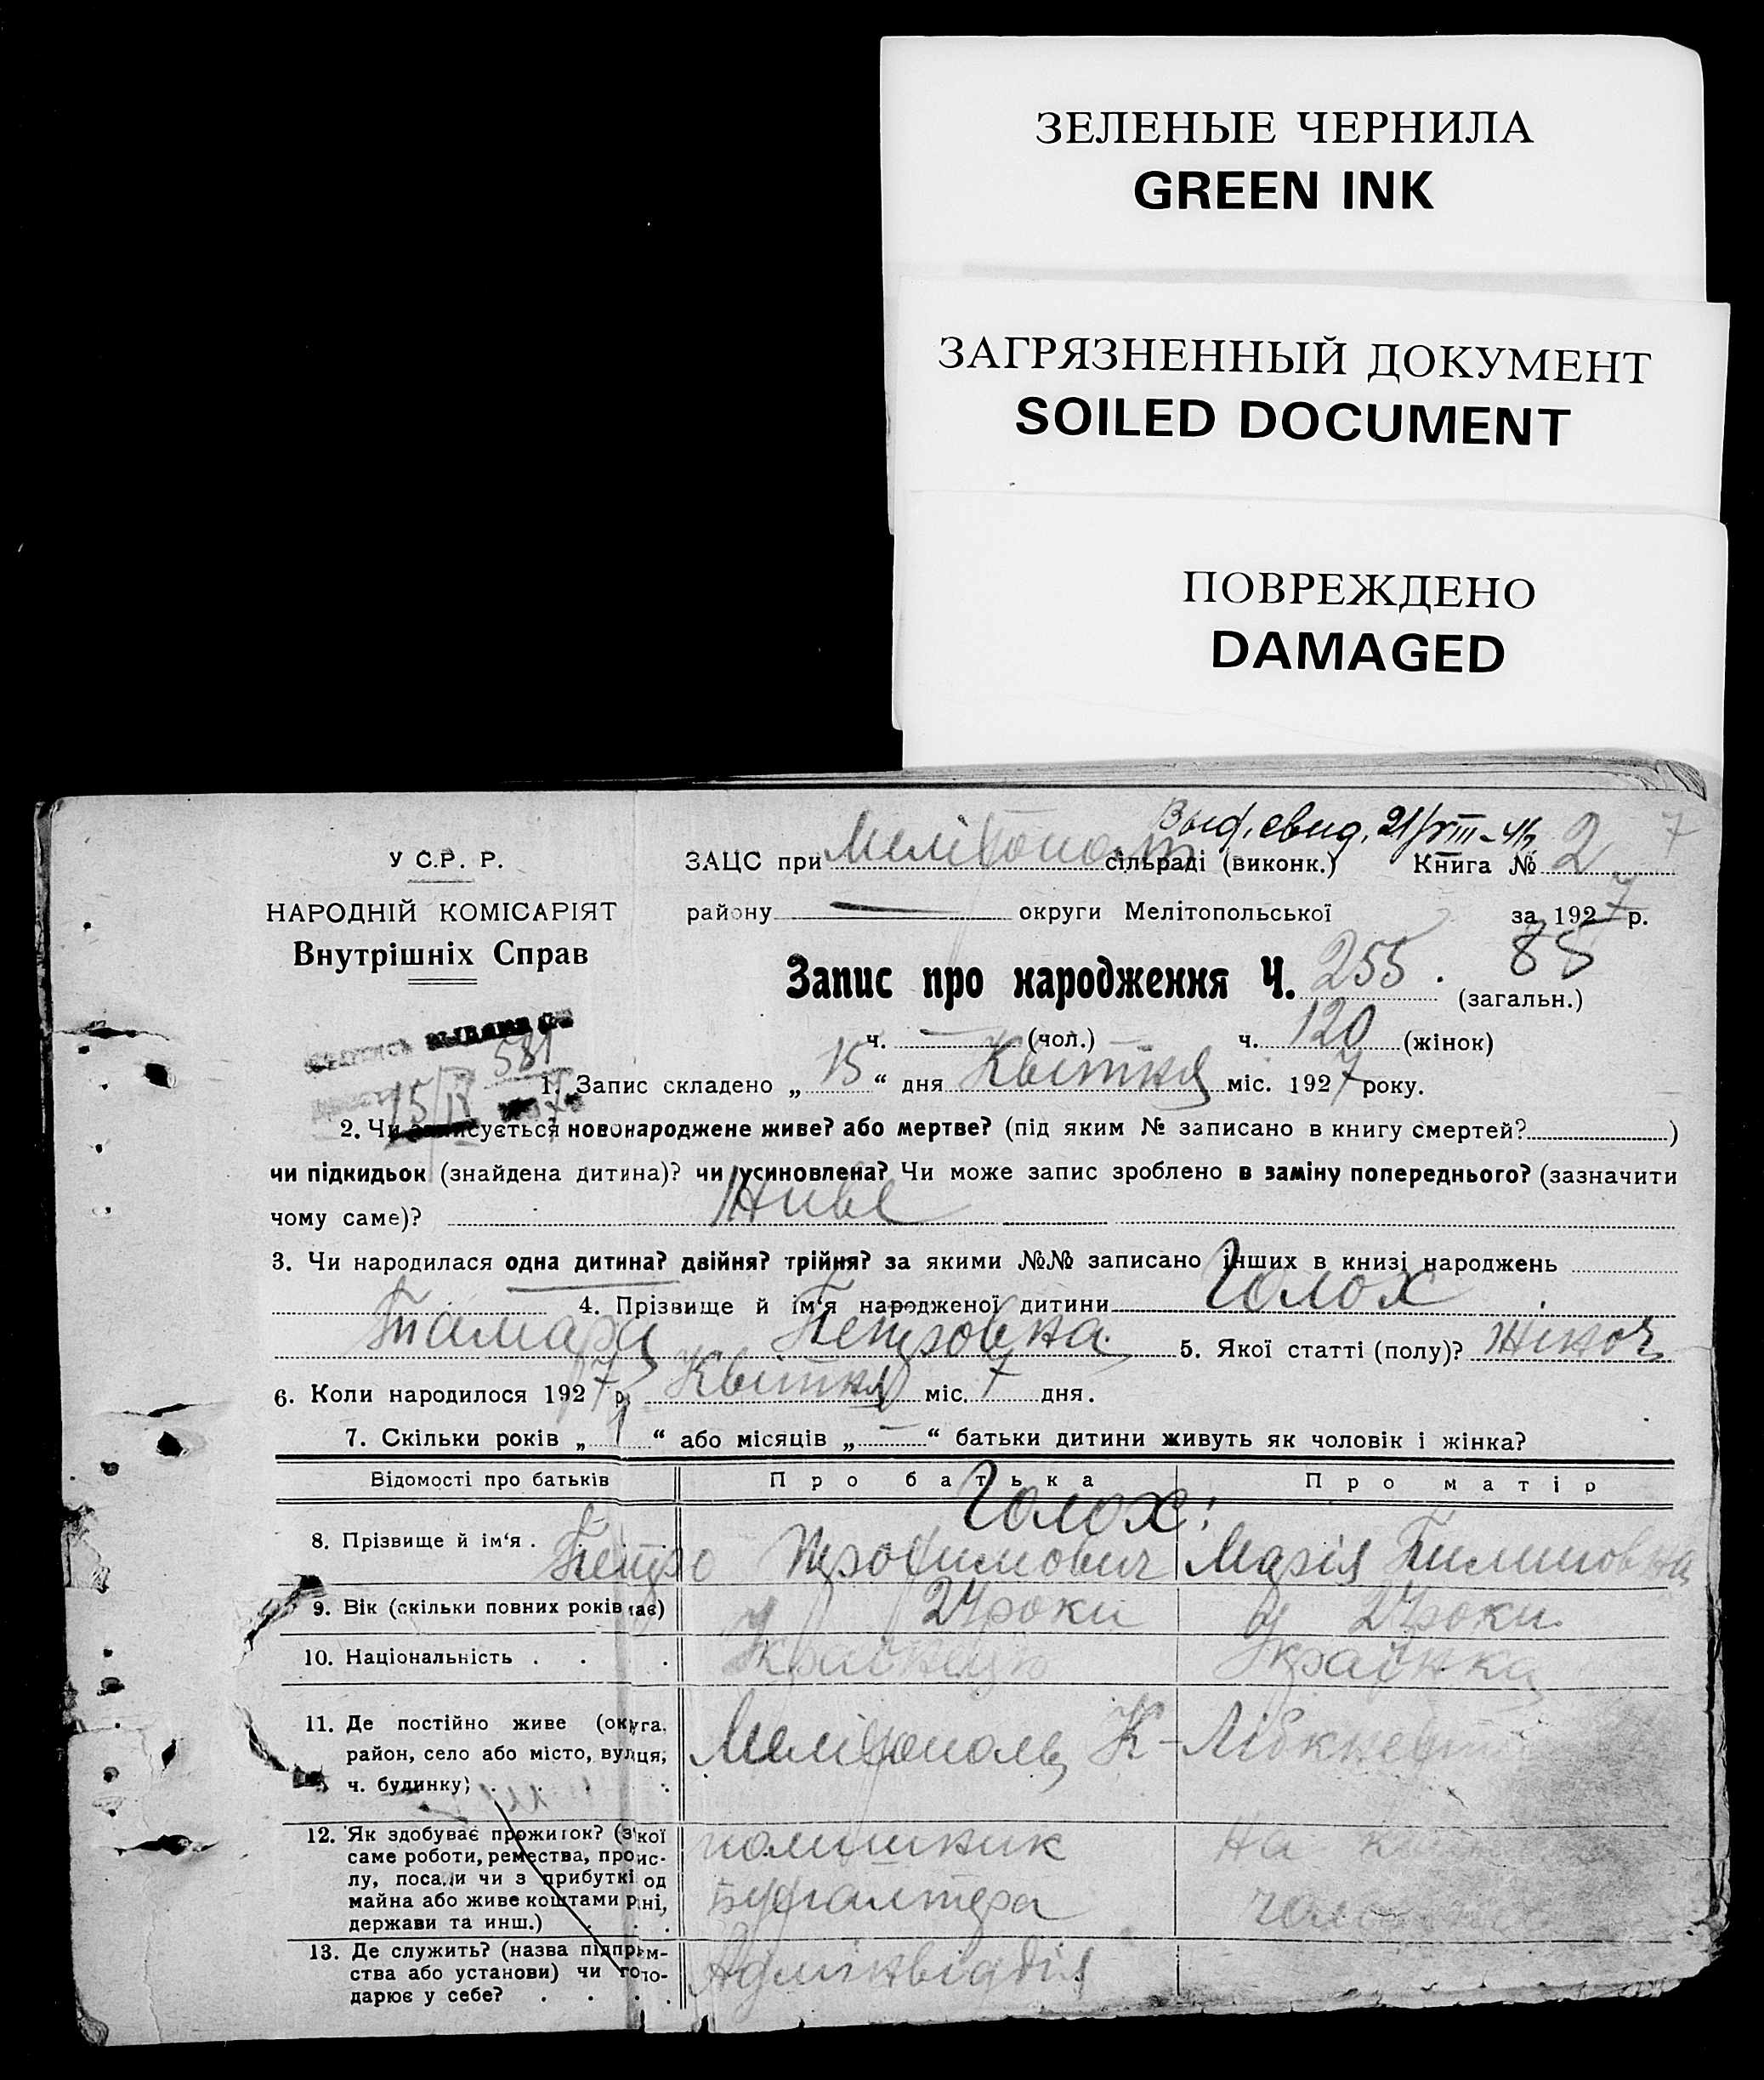 ЗЕЛЕНЫЕ ЧЕРНИЛА
GREEN INK
ЗАГРЯЗНЕННЫЙ ДОКУМЕНТ
SOILED DOCUMENT
ПОВРЕЖДЕНО
DAMAGED
Выд. свид. 21/VIII-
У С.Р. Р.
НАРОДНІЙ КОМІСАРІЯТ
Внутрішніх Справ
ЗАЦС при Мелітополь сільраді (виконк.) Книга № 2 7
району — округи Мелітопольської за 1927 р.
85
Запис про народження Ч. 255. (загальн.)
ч. — (чол.) ч. 120 (жінок)
581
15/IX
1. Запис складено „ 15 “ дня Квітня міс. 1927 року.
2. Чи записується новонароджене живе? або мертве? (під яким № записано в книгу смертей? )
чи підкидьок (знайдена дитина)? чи усиновлена? Чи може запис зроблено в заміну попереднього? (зазначити
чому саме)? Живе
3. Чи народилася одна дитина? двійня? трійня? за якими №№ записано інших в книзі народжень
4. Прізвище й ім‘я народженої дитини Голох
Тамара Петровна. 5. Якої статті (полу)? жіноч
6. Коли народилося 1927 р. Квітня міс. 7 дня.
7. Скільки років „ 1 “ або місяців „ — “ батьки дитини живуть як чоловік і жінка?
Відомості про батьків Про батька Про матір
8. Прізвище й ім‘я . Голох:
Петро Трофимович Марія Пилиповна
9. Вік (скільки повних років має) 24 роки 24 роки
10. Національність . . . Українець Українка
11. Де постійно живе (округа,
район, село або місто, вулиця,
ч. будинку) . . . Мелітополь К-Лібкнехта
12. Як здобуває прожиток? (з якої
саме роботи, ремества, проис
лу, посади чи з прибутків од
майна або живе коштами рідні,
держави та инш.) . . . помішник
бухгалтера
На
13. Де служить? (назва підприєм-
ства або установи) чи госпо-
дарює у себе? . . . . Адмінвідділ